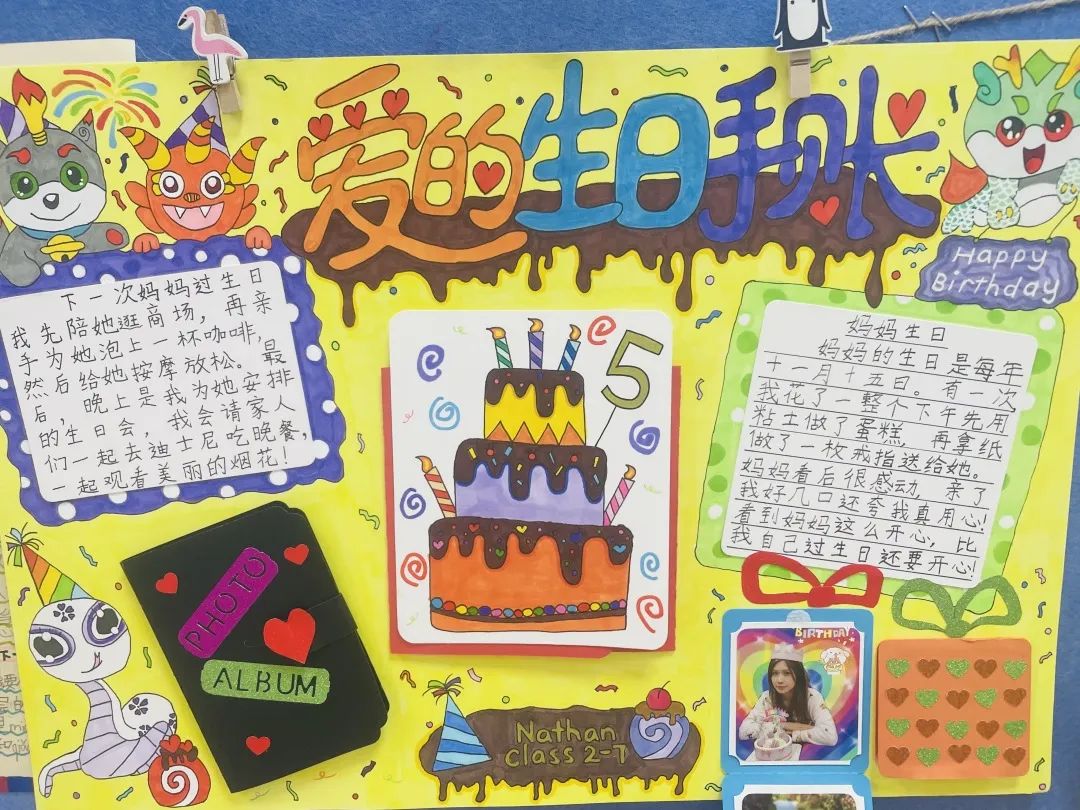 爱的生日手账
Happy
Birthday
下一次妈妈过生日
我先陪她逛商场，再亲
手为她泡上一杯咖啡，
然后给她按摩放松。最
后，晚上是我为她安排
的生日会，我会请家人
们一起去迪士尼吃晚餐，
一起观看美丽的烟花！
5
妈妈生日
妈妈的生日是每年
十一月十五日。有一次
我花了一整个下午先用
粘土做了蛋糕，再拿纸
做了一枚戒指送给她。
妈妈看后很感动，亲了
我好几口还夸我真用心！
看到妈妈这么开心，比
我自己过生日还要开心！
PHOTO
ALBUM
Nathan
Class 2-7
BIRTHDAY